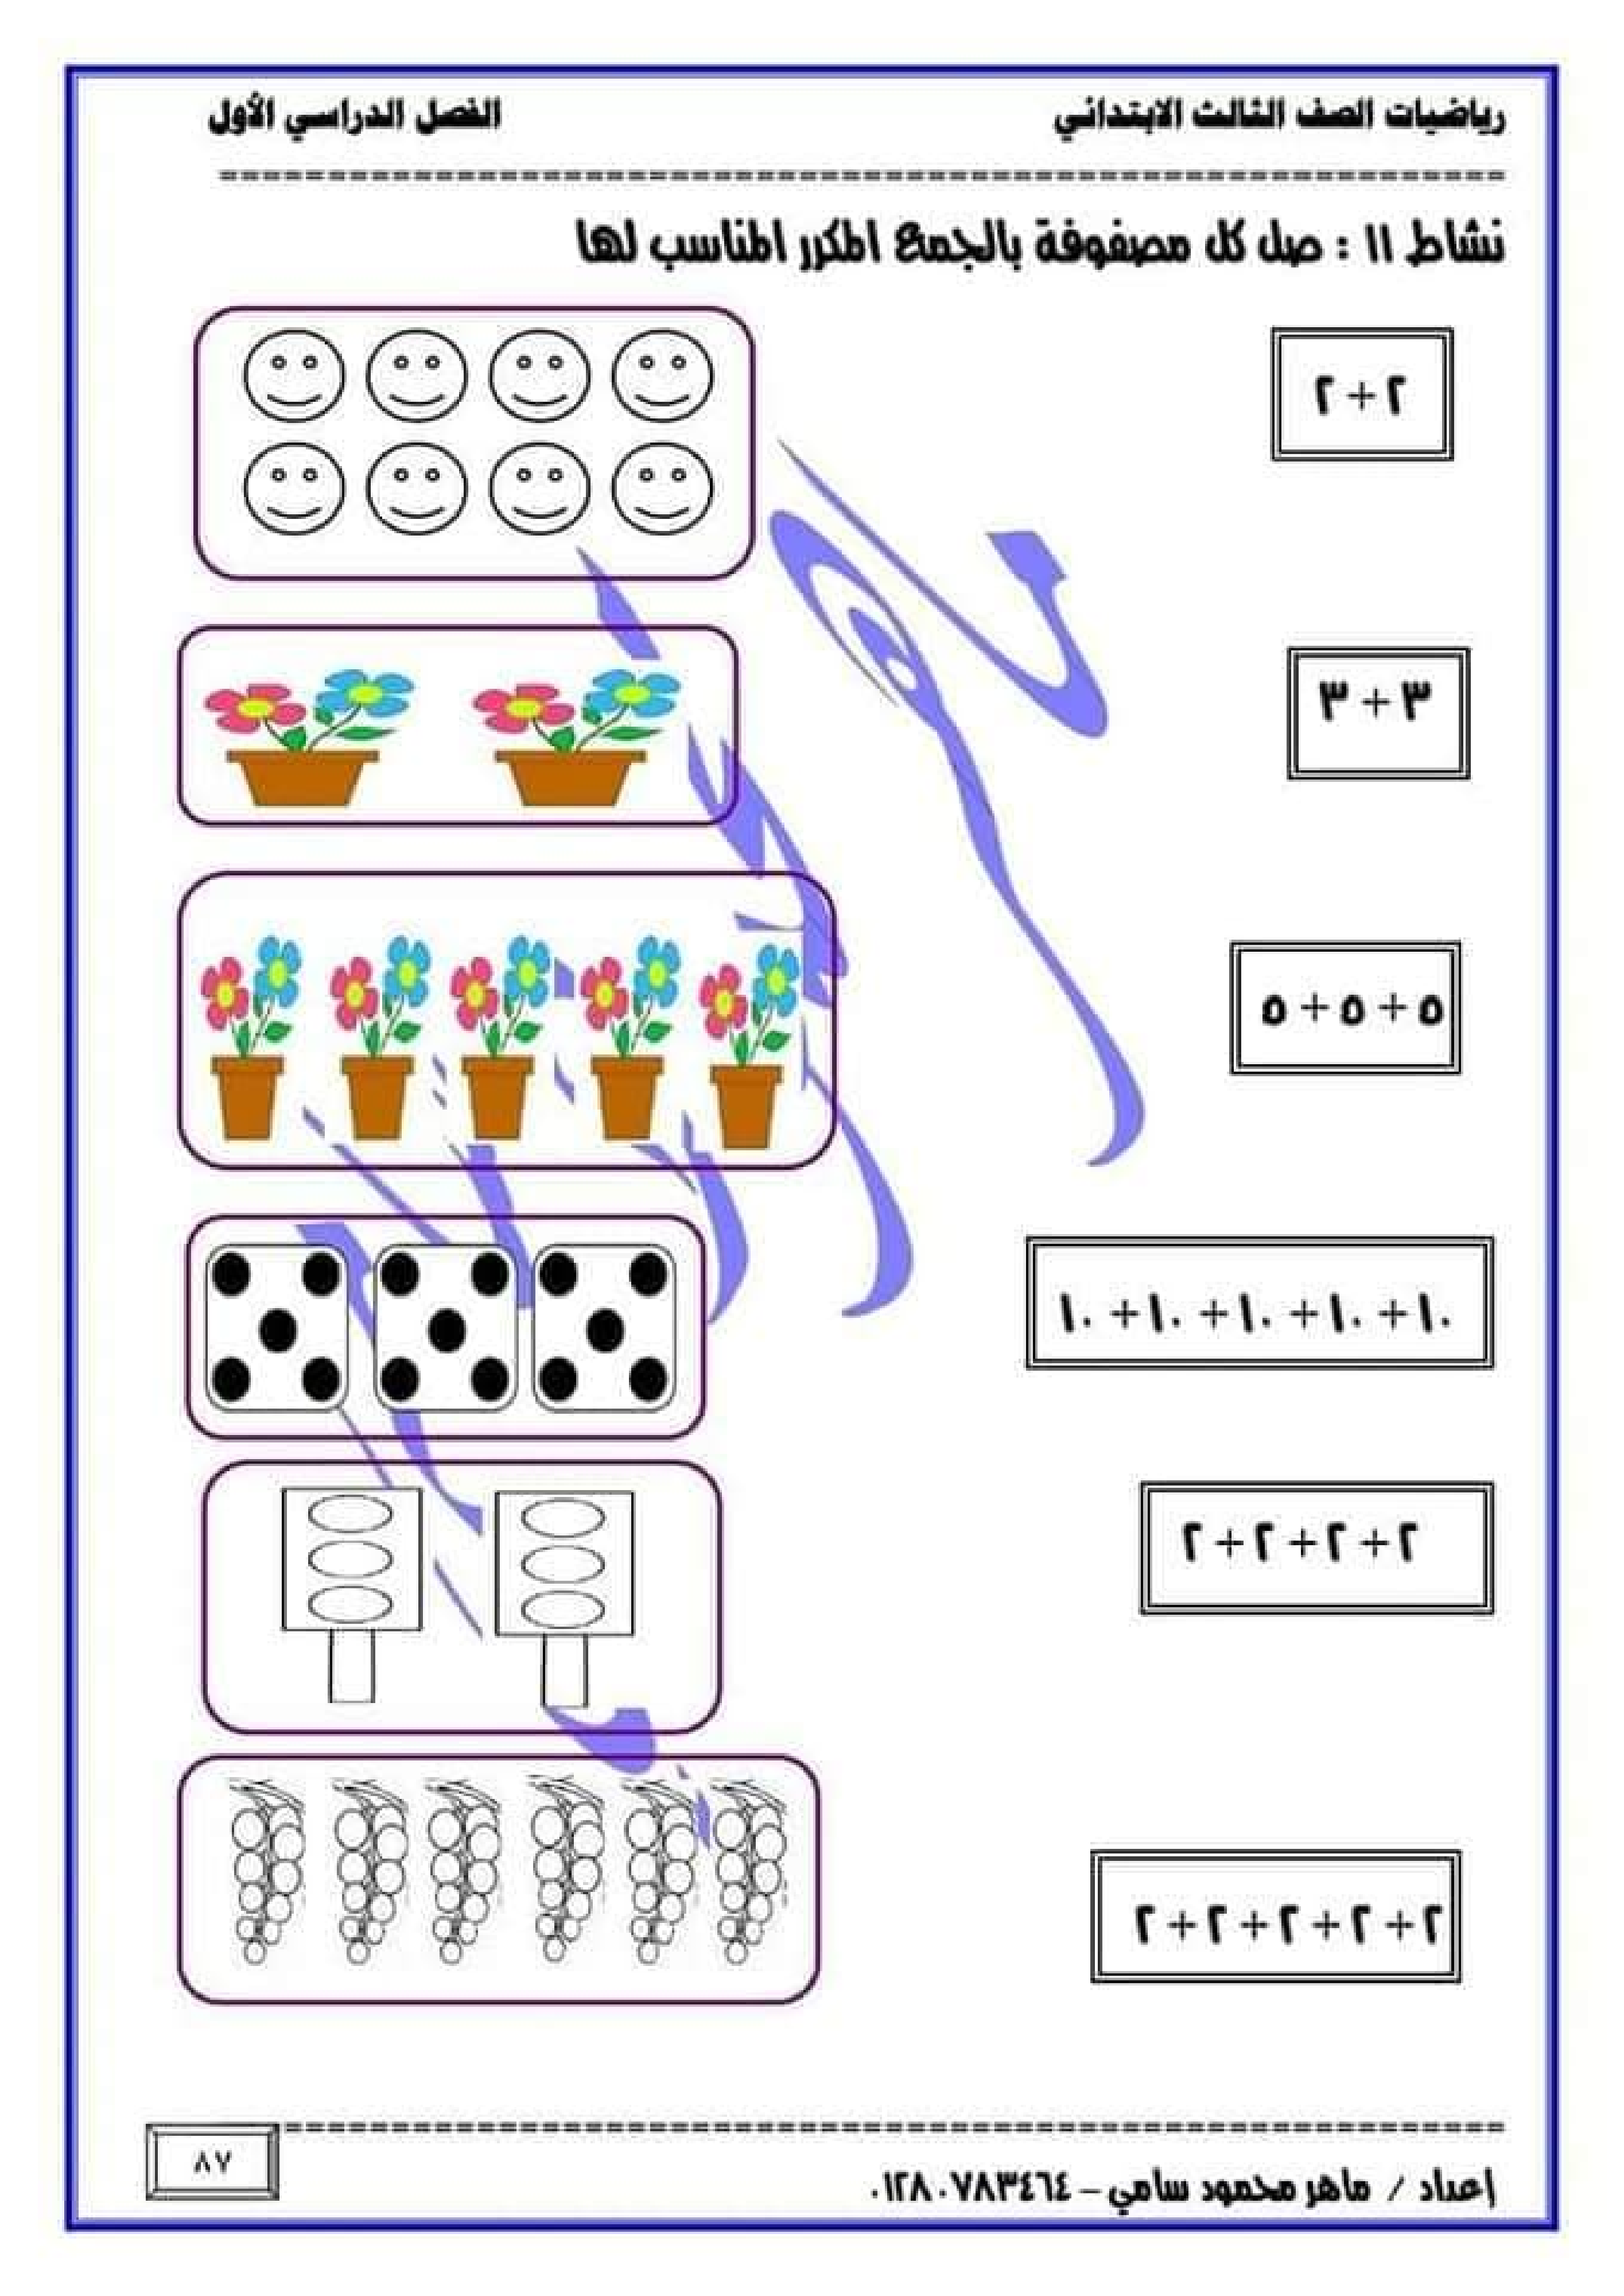 رياضيات الصف الثالث الابتدائي الفصل الدراسي الأول
نشاط ١١ : صل كل مصفوفة بالجمع المكرر المناسب لها
٢ + ٢
٣ + ٣
٥ + ٥ + ٥
١٠ + ١٠ + ١٠ + ١٠ + ١٠
٢ + ٢ + ٢ + ٢
٢ + ٢ + ٢ + ٢ + ٢
٨٧
إعداد / ماهر محمود سامي – ٠١٢٨٠٧٨٣٤٦٤